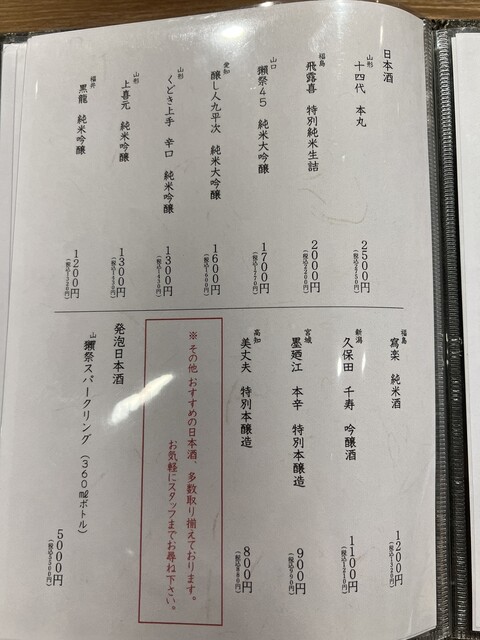 日本酒
山形
十四代 本丸
2500円
(税込2750円)
福島
飛露喜 特別純米生詰
2000円
(税込2200円)
山口
獺祭45 純米大吟醸
1700円
愛知
醸し人九平次 純米大吟醸
1600円
山形
くどき上手 辛口 純米吟醸
1300円
山形
上喜元 純米吟醸
1300円
福井
黒龍 純米吟醸
1200円
(税込1320円)
福島
寫楽 純米酒
1200円
(税込1320円)
新潟
久保田 千寿 吟醸酒
1100円
(税込1210円)
宮城
墨廼江 本辛 特別本醸造
900円
(税込990円)
高知
美丈夫 特別本醸造
800円
(税込880円)
※その他おすすめの日本酒、多数取り揃えております。
お気軽にスタッフまでお尋ね下さい。
発泡日本酒
山口
獺祭スパークリング(360mlボトル)
5000円
(税込5500円)